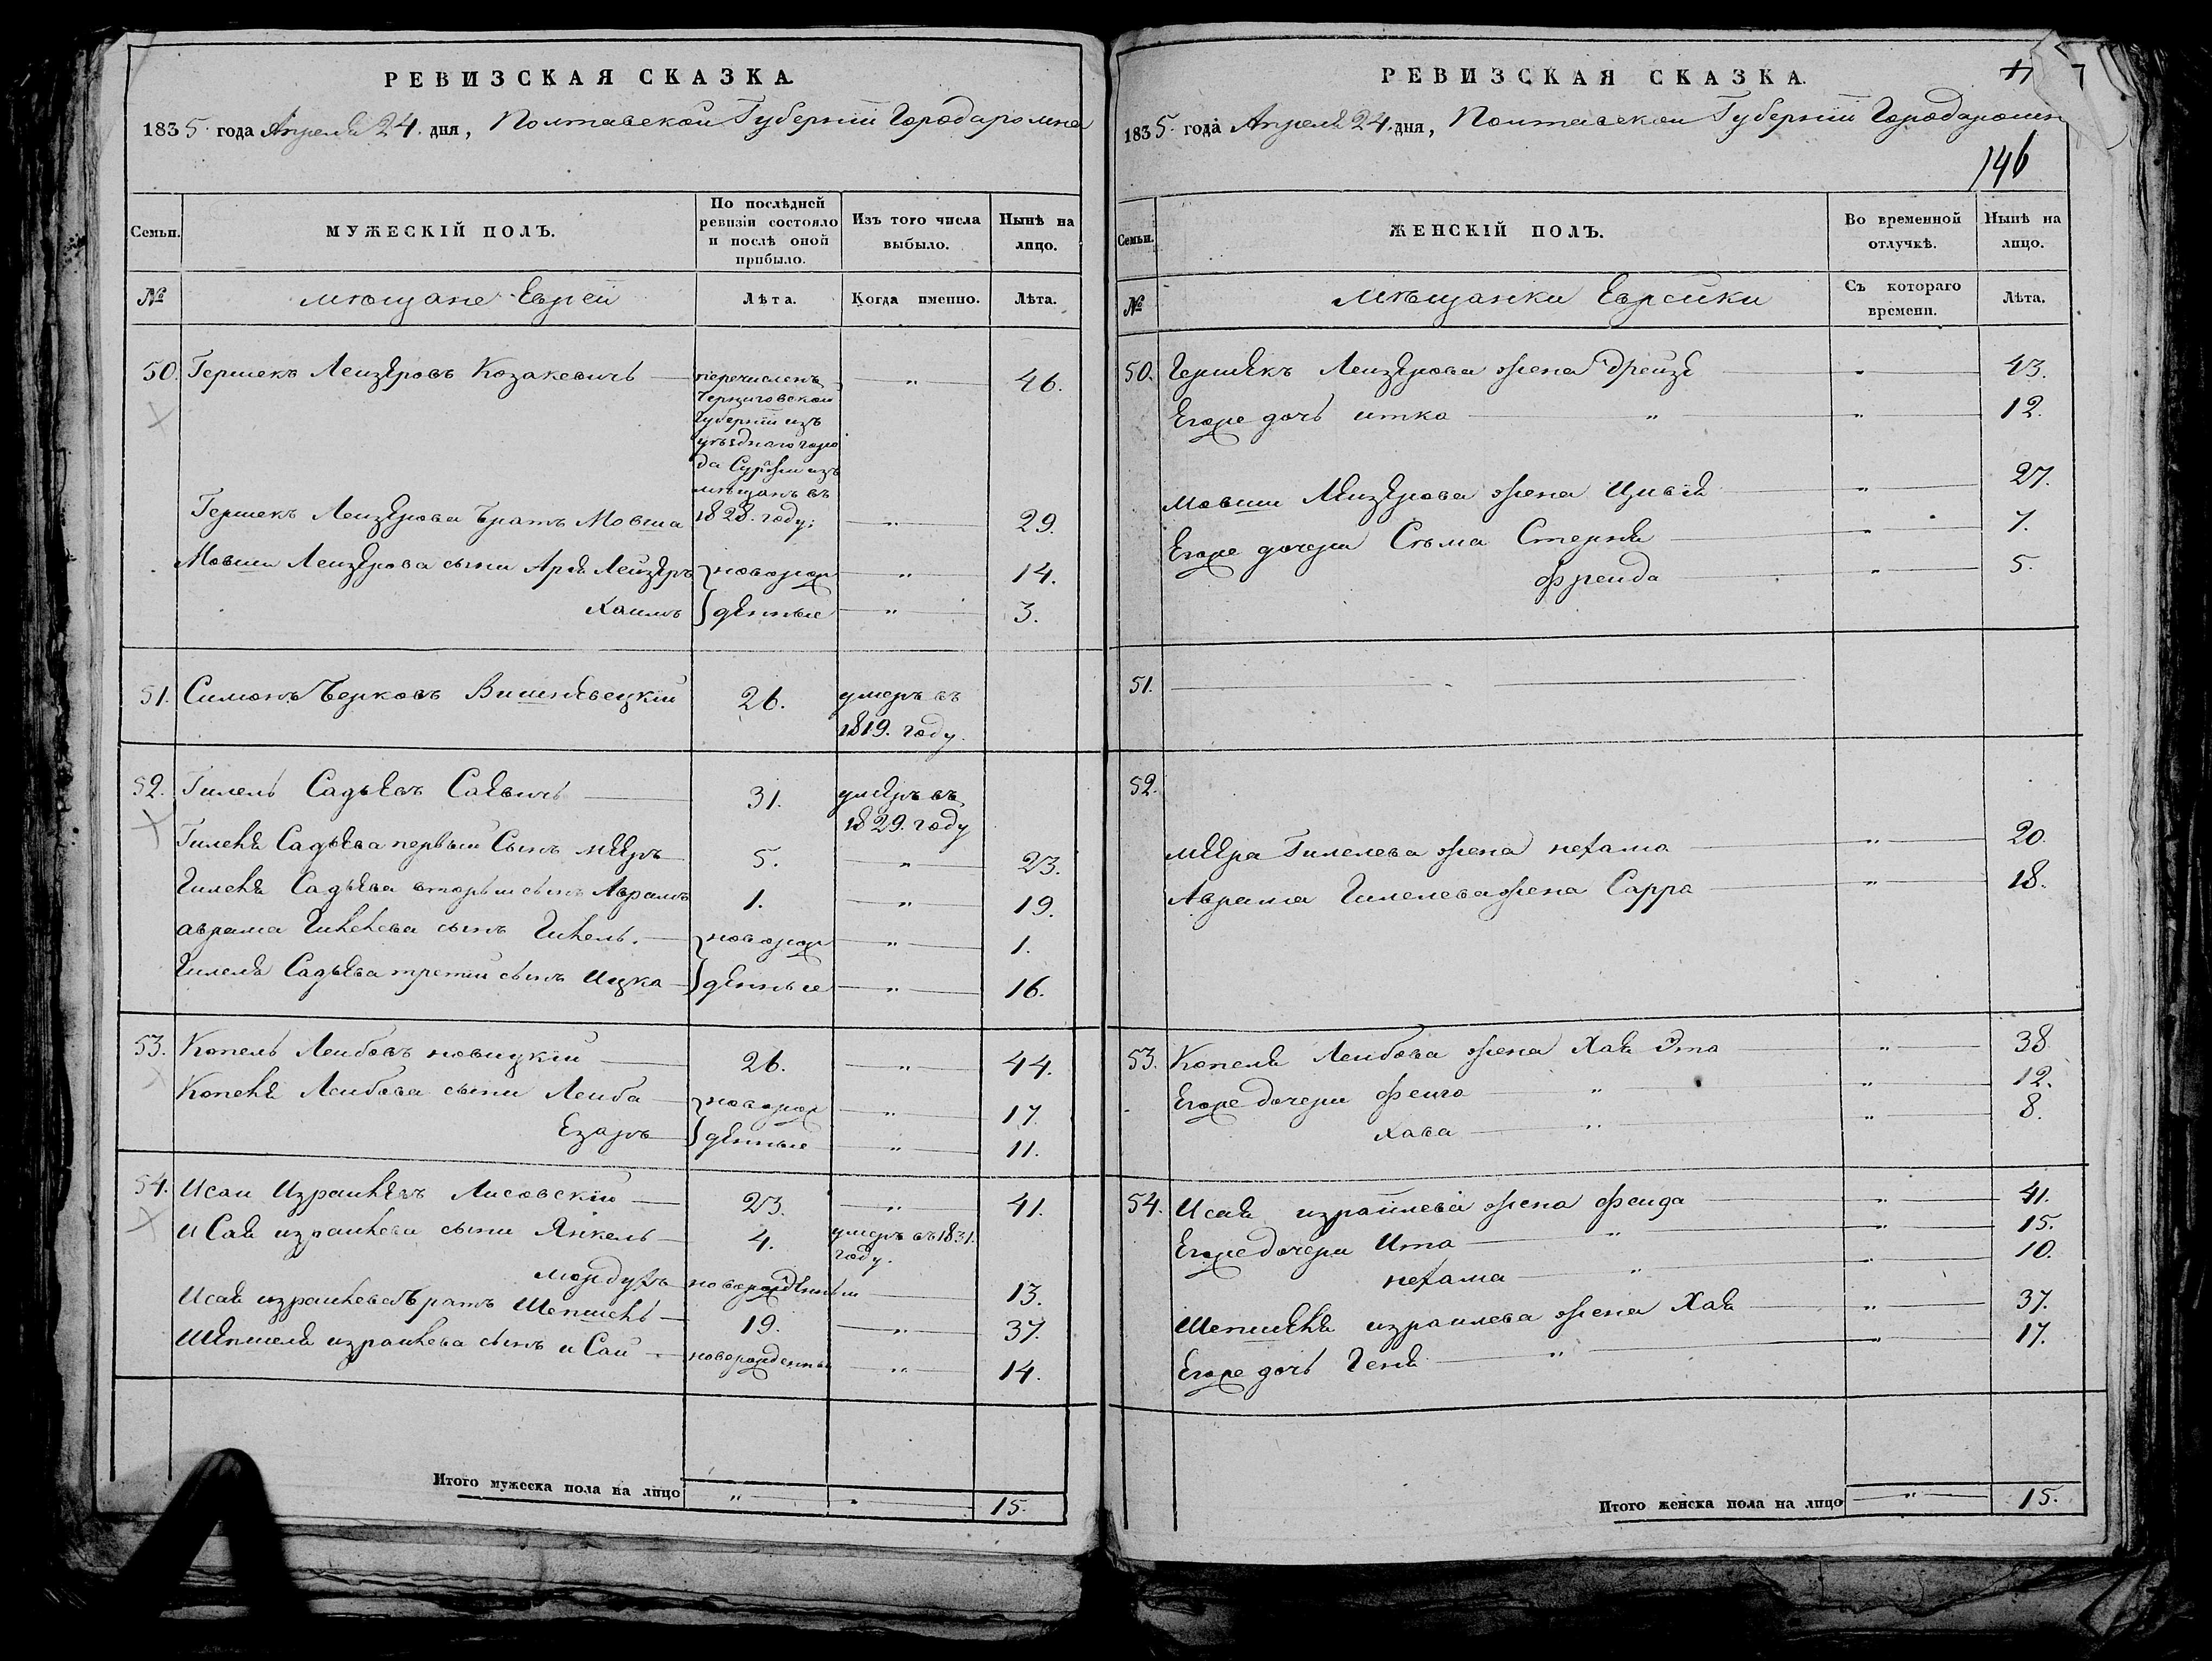 РЕВИЗСКАЯ СКАЗКА.
1835. года Апреля 24. дня, Полтавской Губернїи Города ромна
Семьи.
МУЖЕСКІЙ ПОЛЪ.
По послѣдней ревизіи состояло и послѣ оной прибыло.
Изъ того числа выбыло.
Нынѣ на лицо.
№
мѣщане Евреи
Лѣта.
Когда именно.
Лѣта.
50. Гершекъ Лейзеровъ Козакевичь перечисленъ " 46.
Черниговской
Губернїи изъ
уѣзднаго горо
да Суражи изъ
мѣщанъ въ
Гершекъ Лейзерова братъ Мовша 1828. году; " 29.
Мовши Лейзерова сыни Арья Лейзеръ новорож " 14.
Хаимъ денные " 3.
51. Симонъ Берковъ Вишневецкїй 26. умеръ въ
1819. году.
52. Гилель Садьевъ Саевичь 31. умеръ въ
1829. году
Гилеля Садьева первый Сынъ Мееръ 5. " 23.
Гилеля Садьева вторый сынъ Аврамъ 1. " 19.
аврама Гилелева сынъ Гилель. новорож " 1.
Гилеля Садьева третий сынъ Ицка денные " 16.
53. Копель Лейбовъ новицкїй 26. " 44.
Копеля Лейбова сыни Лейба новорож " 17.
Езаръ денные " 11.
54. Исаи Израилевъ Лисовскїй 23. " 41.
ИСая израилева сыни Янкель 4. умеръ въ 1831.
году.
мордухъ новорожденный 13.
Исая израилева братъ Шепшель 19. " 37.
Шепшеля израилева сынъ иСаи новорожденный " 14.
Итого мужеска пола на лицо " 15.
РЕВИЗСКАЯ СКАЗКА.
1835. года Апреля 24. дня, Полтавской Губернїи Города ромна
146
Семьи.
ЖЕНСКІЙ ПОЛЪ.
Во временной отлучкѣ.
Нынѣ на лицо.
№
Мѣщанки Еврейки
Съ котораго времени.
Лѣта.
50. Гершекъ Лейзерова жена Дрейзе " 43.
Егоже дочь итка " " 12.
Мовши Лейзерова жена Цивья " 27.
Егоже дочери Сьма Стерня " 7.
Фрейда " 5.
51.
52.
Меера Гилелева жена нехама " 20.
Аврама Гилелева жена Сарра " 18.
53. Копеля Лейбова жена Хая Эта " 38
Егоже дочери Фейга " " 12.
Хава " " 8.
54. Исая израилева жена Фейда " 41.
Егоже дочери Ита " " 15.
нехама " " 10.
Шепшеля израилева жена Хая " 37.
Егоже дочь Геня " " 17.
Итого женска пола на лицо " 15.